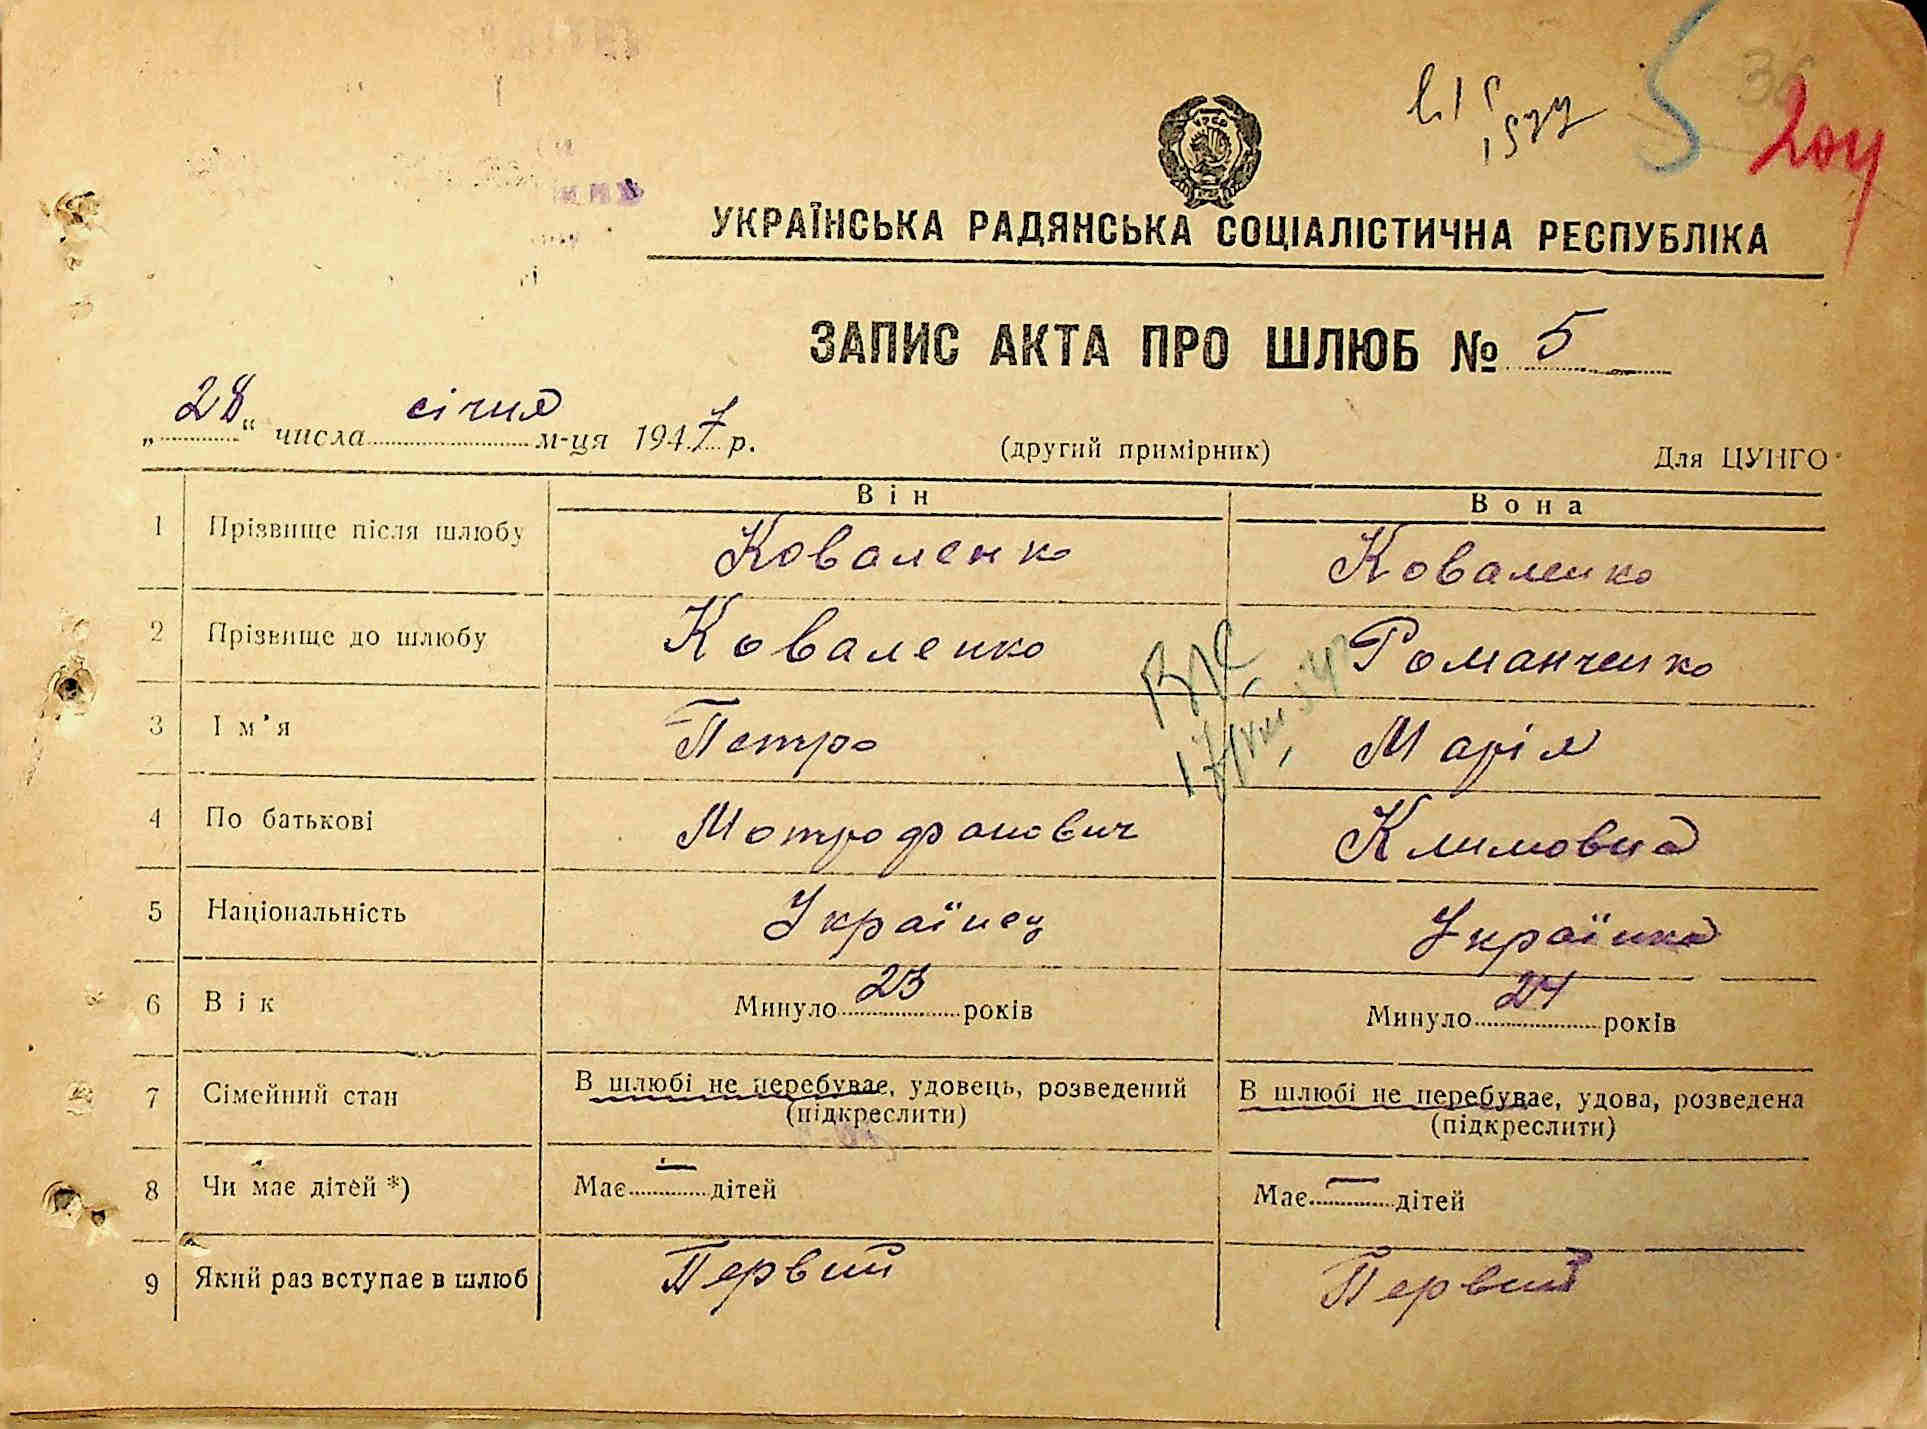 5
УКРАЇНСЬКА РАДЯНСЬКА СОЦІАЛІСТИЧНА РЕСПУБЛІКА
ЗАПИС АКТА ПРО ШЛЮБ № 5
„28“ числа січня м-ця 1947 р. (другий примірник) Для ЦУНГО
Він Вона
1 Прізвище після шлюбу Коваленко Коваленко
2 Прізвище до шлюбу Коваленко Романченко
3 Ім'я Петро Марія
4 По батькові Мотрофанович Климовна
5 Національність Українец Українка
6 Вік Минуло 23 років Минуло 24 років
7 Сімейний стан В шлюбі не перебуває, удовець, розведений В шлюбі не перебуває, удова, розведена
(підкреслити) (підкреслити)
8 Чи має дітей *) Має — дітей Має — дітей
9 Який раз вступає в шлюб Первий Первий